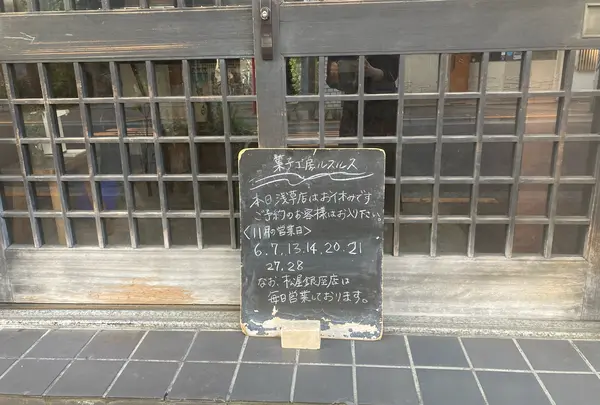 菓子工房ルスルス
本日浅草店はお休みです
ご予約のお客様はお入りください。
〈11月の営業日〉
6.7.13.14.20.21
27.28
なお、松屋銀座店は
毎日営業しております。